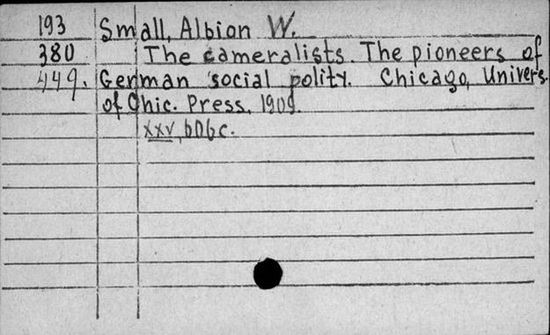 193 Small, Albion W.
380 The cameralists. The pioneers of
449. German social polity. Chicago, Univers.
of Chic. Press, 1909.
xxv, 606 c.